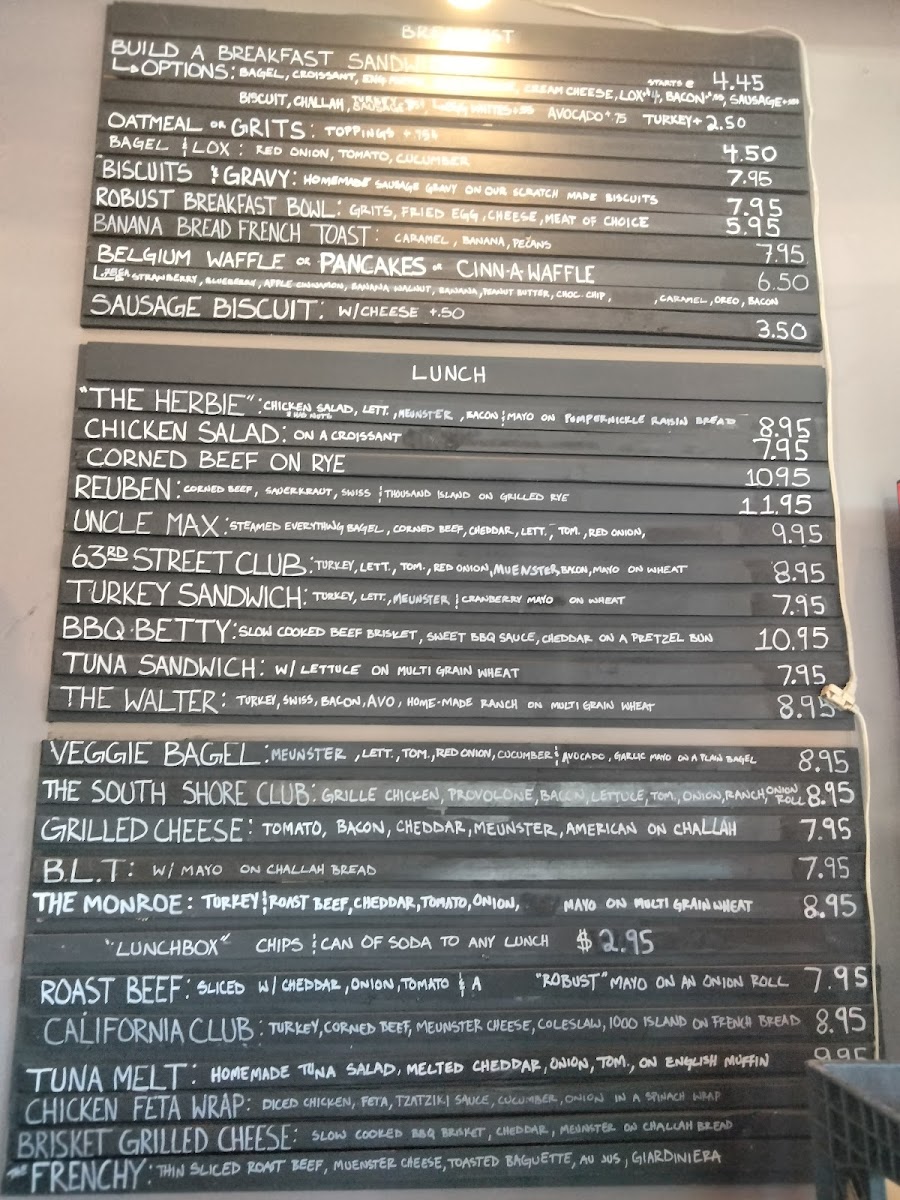 BREAKFAST
BUILD A BREAKFAST SANDW
OPTIONS: BAGEL, CROISSANT, CREAM CHEESE, LOX+4, BACON+ SAUSAGE+ STARTS @ 4.45
BISCUIT, CHALLAH, EGG WHITES+ AVOCADO+.75 TURKEY+2.50
OATMEAL OR GRITS: TOPPINGS +.75 4.50
BAGEL & LOX: RED ONION, TOMATO, CUCUMBER 7.95
BISCUITS & GRAVY: HOMEMADE SAUSAGE GRAVY ON OUR SCRATCH MADE BISCUITS 7.95
ROBUST BREAKFAST BOWL: GRITS, FRIED EGG, CHEESE, MEAT OF CHOICE 5.95
BANANA BREAD FRENCH TOAST: CARAMEL, BANANA, PECANS 7.95
BELGIUM WAFFLE OR PANCAKES OR CINN-A-WAFFLE 6.50
STRAWBERRY, BLUEBERRY, APPLE CINNAMON, BANANA WALNUT, BANANA, PEANUT BUTTER, CHOC. CHIP, , CARAMEL, OREO, BACON
SAUSAGE BISCUIT: W/CHEESE +.50 3.50
LUNCH
"THE HERBIE": CHICKEN SALAD, LETT., MEUNSTER, BACON & MAYO ON PUMPERNICKLE RAISIN BREAD 8.95
CHICKEN SALAD: ON A CROISSANT 7.95
CORNED BEEF ON RYE 10.95
REUBEN: CORNED BEEF, SAUERKRAUT, SWISS & THOUSAND ISLAND ON GRILLED RYE 11.95
UNCLE MAX: STEAMED EVERYTHING BAGEL, CORNED BEEF, CHEDDAR, LETT., TOM., RED ONION, 9.95
63RD STREET CLUB: TURKEY, LETT., TOM., RED ONION, MUENSTER, BACON, MAYO ON WHEAT 8.95
TURKEY SANDWICH: TURKEY, LETT., MEUNSTER & CRANBERRY MAYO ON WHEAT 7.95
BBQ BETTY: SLOW COOKED BEEF BRISKET, SWEET BBQ SAUCE, CHEDDAR ON A PRETZEL BUN 10.95
TUNA SANDWICH: W/ LETTUCE ON MULTI GRAIN WHEAT 7.95
THE WALTER: TURKEY, SWISS, BACON, AVO, HOME-MADE RANCH ON MULTI GRAIN WHEAT 8.95
VEGGIE BAGEL: MEUNSTER, LETT., TOM., RED ONION, CUCUMBER & AVOCADO, GARLIC MAYO ON A PLAIN BAGEL 8.95
THE SOUTH SHORE CLUB: GRILLE CHICKEN, PROVOLONE, BACON, LETTUCE, TOM, ONION, RANCH, ONION ROLL 8.95
GRILLED CHEESE: TOMATO, BACON, CHEDDAR, MEUNSTER, AMERICAN ON CHALLAH 7.95
B.L.T: W/ MAYO ON CHALLAH BREAD 7.95
THE MONROE: TURKEY & ROAST BEEF, CHEDDAR, TOMATO, ONION, MAYO ON MULTI GRAIN WHEAT 8.95
"LUNCHBOX" CHIPS & CAN OF SODA TO ANY LUNCH $2.95
ROAST BEEF: SLICED W/ CHEDDAR, ONION, TOMATO & A "ROBUST" MAYO ON AN ONION ROLL 7.95
CALIFORNIA CLUB: TURKEY, CORNED BEEF, MEUNSTER CHEESE, COLESLAW, 1000 ISLAND ON FRENCH BREAD 8.95
TUNA MELT: HOMEMADE TUNA SALAD, MELTED CHEDDAR, ONION, TOM., ON ENGLISH MUFFIN 9.95
CHICKEN FETA WRAP: DICED CHICKEN, FETA, TZATZIKI SAUCE, CUCUMBER, ONION IN A SPINACH WRAP
BRISKET GRILLED CHEESE: SLOW COOKED BBQ BRISKET, CHEDDAR, MEUNSTER ON CHALLAH BREAD
THE FRENCHY: THIN SLICED ROAST BEEF, MUENSTER CHEESE, TOASTED BAGUETTE, AU JUS, GIARDINIERA